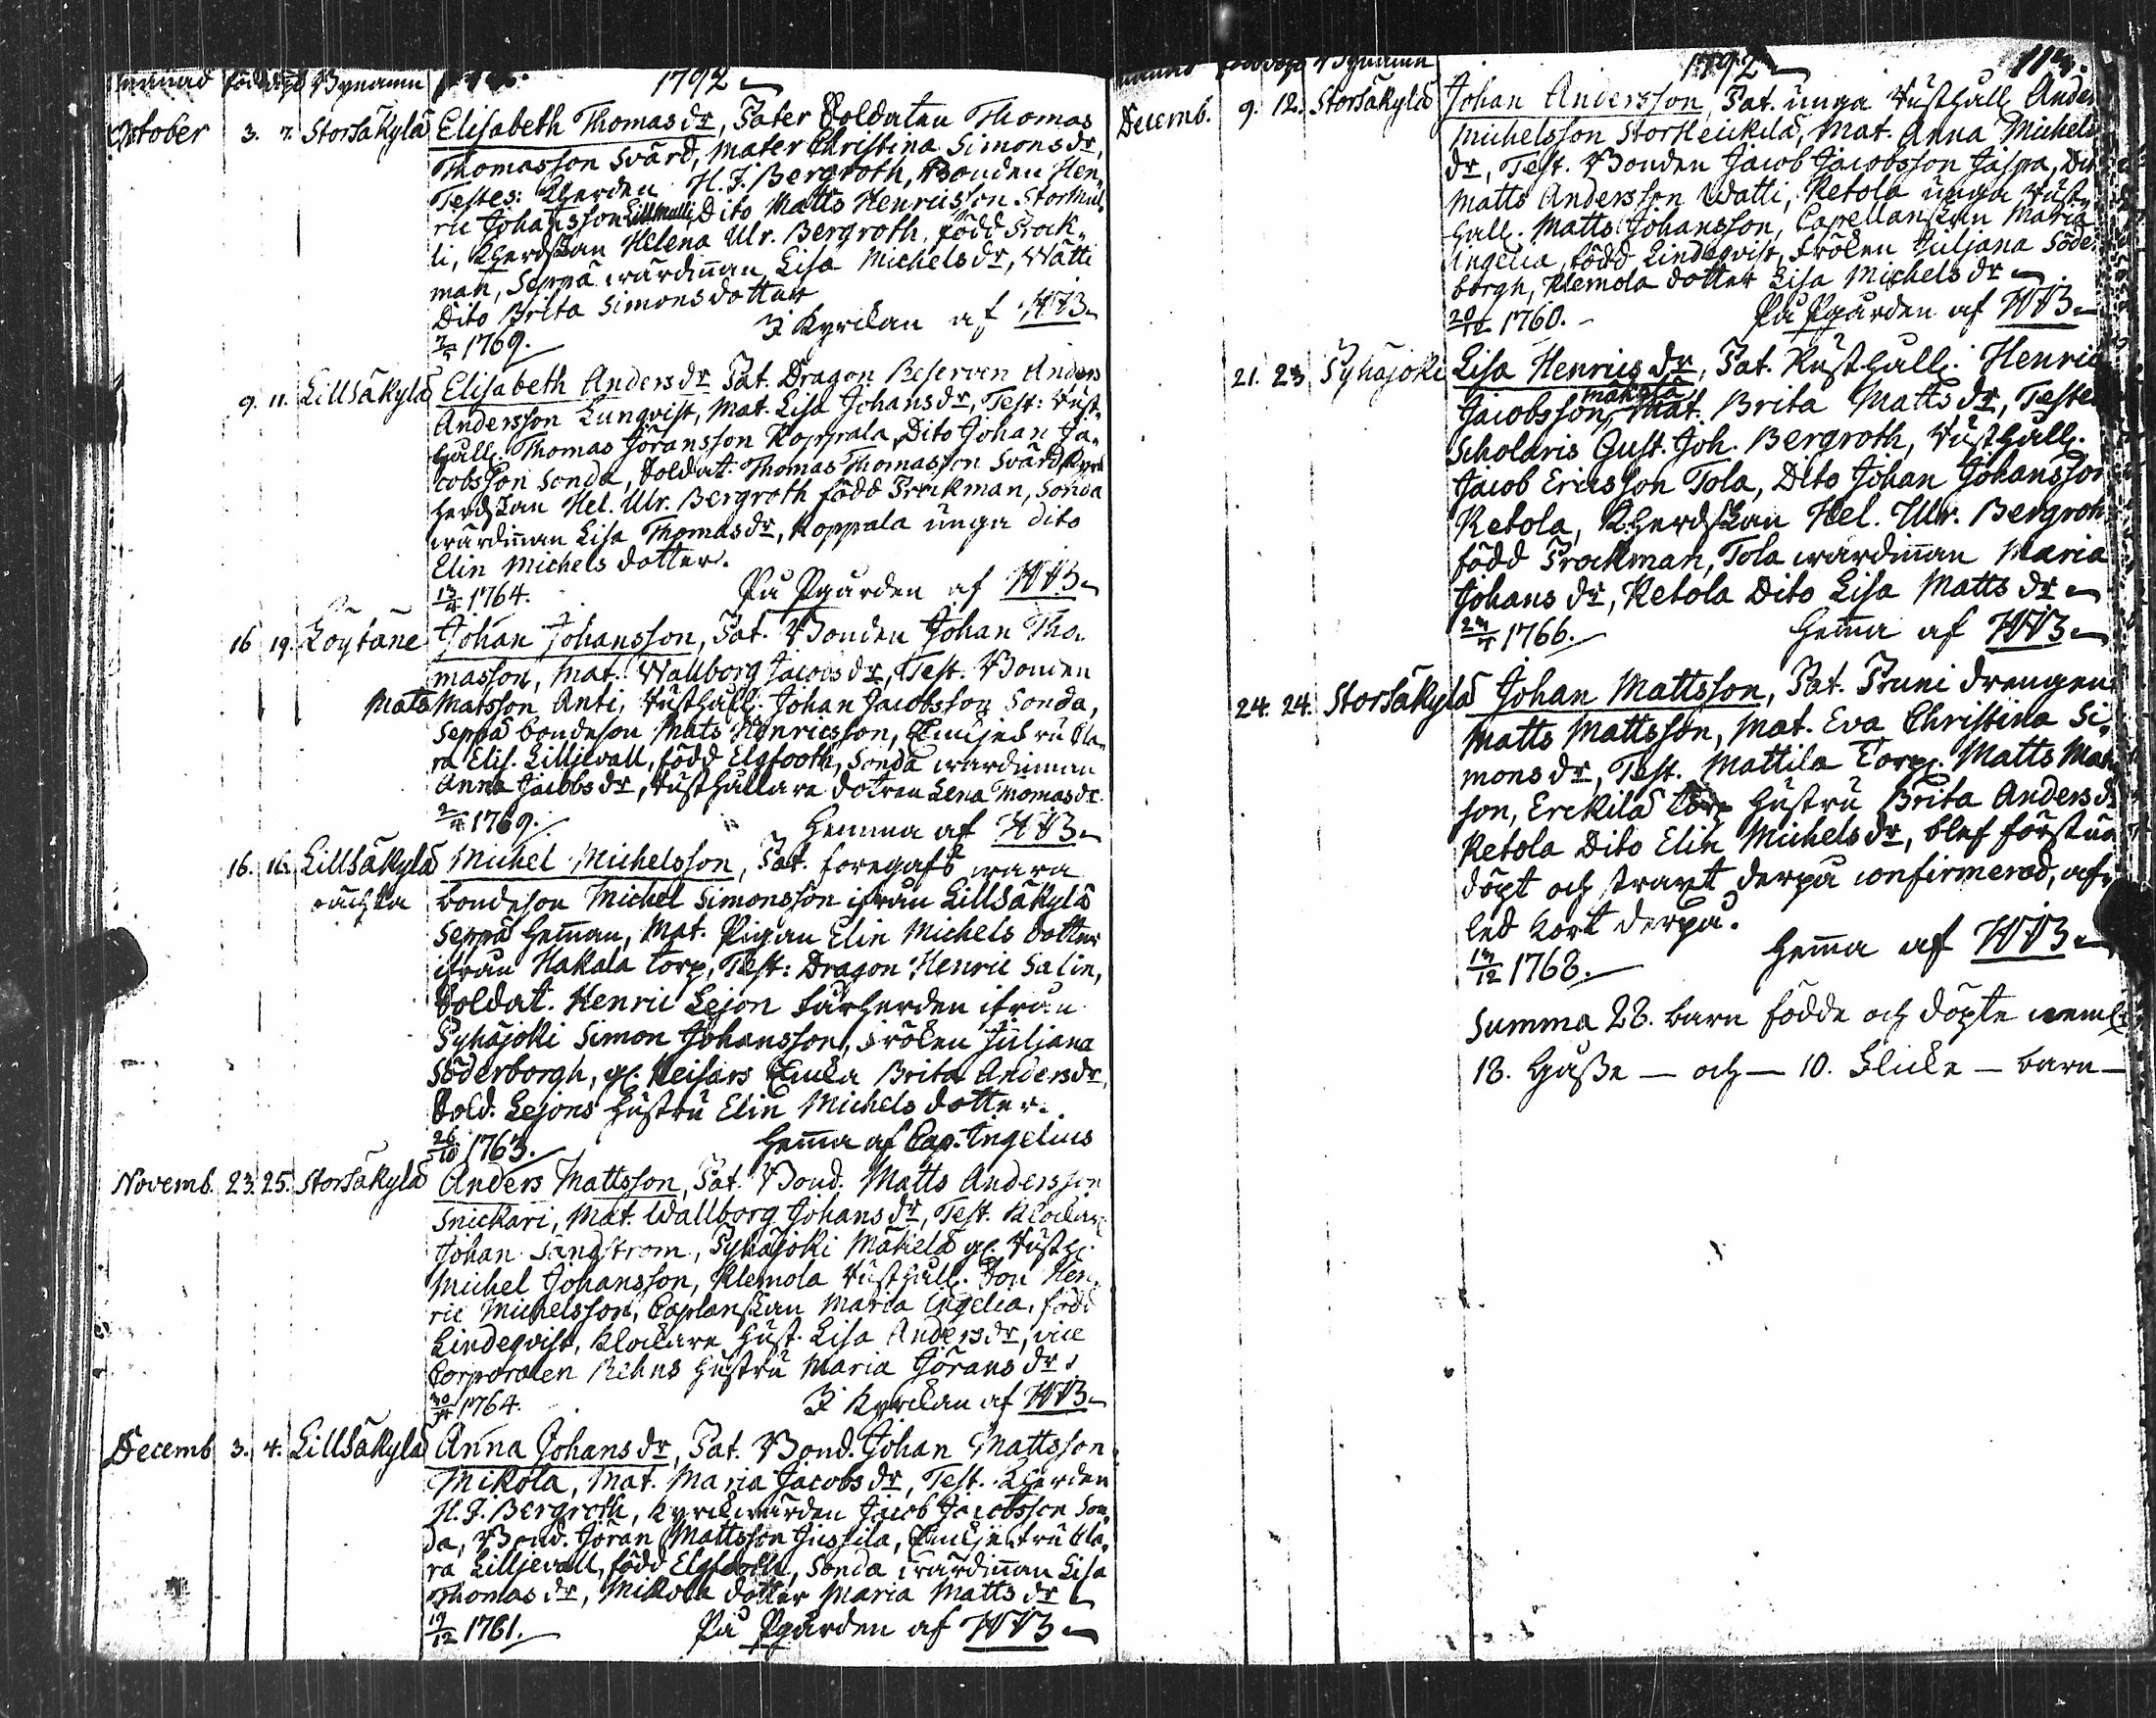 månad född döpt Bynamn 1792
October 3. 7. Storsäkylä Elisabeth Thomasdr, Pater Soldaten Thomas
Thomasson Svärd, Mater Christina Simonsdr,
Testes: KHerden H. J. Bergroth, Bonden Hen-
ric Johansson Lillmulli, Dito Matts Henricsson Stormul-
li, KHerdskan Helena Ulr. Bergroth, född Prock-
man, Seppä wärdinnan Lisa Michelsdr, Wätti
Dito Brita Simonsdotter
1769. I Kyrckan af HJB
9. 11. Lillsäkylä Elisabeth Andersdr Pat. Dragon Reserven Anders
Andersson Lunqvist, Mat. Lisa Johansdr, Test: Rust-
håll. Thomas Jöransson Koppala, Dito Johan Ja-
cobsson Sonda, Soldat. Thomas Thomasson Svärd, Kyrk
herdskan Hel. Ulr. Bergroth född Prockman, Sonda
wärdinnan Lisa Thomasdr, Koppala unga dito
Elin Michels dotter.
1764. På Pgården af HJB
16 19. Löytäne Johan Johansson, Pat. Bonden Johan Tho-
masson, Mat. Wallborg Jacobsdr, Test. Bonden
Mats Matsson Anti, Rusthåll. Johan Jacobsson Sonda,
Seppä bondeson Mats Henricsson, Enckjefru Cla-
ra Elis. Lilljevall, född Elgfooth, Sonda wärdinnan
Anna Jacobsdr, Rusthållare dotren Lena Thomasdr
1769. Hemma af HJB
16. 16. Lillsäkylä Michel Michelsson, Pat. föregafs wara
oäckta bondeson Michel Simonsson ifrån Lillsäkylä
Seppä Heman, Mat. Pigan Elin Michels dotter
ifrån Hakala torp, Test: Dragon Henric Salin,
Soldat. Henric Lejon Fårherden ifrån
Pyhäjoki Simon Johansson, Fröken Juljana
Söderborgh, gl. Keisars Encka Brita Andersdr,
Sold. Lejons hustru Elin Michels dotter.
26/10 1763. Hemma af Cap. Ingelius
Novemb. 23. 25. Storsäkylä Anders Mattsson, Pat. Bond. Matts Andersson
Snickari, Mat. Wallborg Johansdr, Test. Klockar
Johan Sandstrom, Pyhäjoki Mäkelä gl. Rusth.
Michel Johansson, Klemola Rusthåll. Son Hen-
ric Michelsson, Caplanskan Maria Ingelia, född
Lindeqvist, Klockare Hust. Lisa Andersdr, vice
Corporalen Rehns Hustru Maria Jörans dr.
1764. I Kyrckan af HJB
Decemb 3. 4. Lillsäkylä Anna Johansdr, Pat. Bond. Johan Mattsson
Mikola, Mat. Maria Jacobsdr, Test. KHerden
H. J. Bergroth, Kyrckwärden Jacob Jacobsson Son-
da, Bond. Jöran Mattsson Jussila, Enckjefru Cla-
ra Lilljevall, född Elgfooth, Sonda wärdinnan Lisa
Thomasdr, Mikola dotter Maria Mattsdr
19/12 1761. På Pgården af HJB
månad född döpt Bynamn 1792
Decemb. 9. 12. Storsäkylä Johan Andersson, Pat. unga Rusthåll. Ander
Michelsson Storheickilä, Mat. Anna Michels
dr, Test. Bonden Jacob Jacobsson Jaspa, Dit
Matts Andersson Watti, Retola unga Rust-
håll. Matts Johansson, Capellanskan Maria
Ingelia, född Lindeqvist, Fröken Juljana Söder-
borgh, Klemola dotter Lisa Michelsdr
1760. På Pgården af HJB
21. 23 Pyhäjoki Lisa Henricsdr, Pat. Rusthåll. Henric
Jacobsson Mäkelä, Mat. Brita Mattsdr, Testes
Scholaris Gust. Joh. Bergroth, Rusthåll.
Jacob Ericsson Tola, Dito Johan Johansson
Retola, KHerdskan Hel. Ulr. Bergroth
född Prockman, Tola wärdinnan Maria
Johansdr, Retola Dito Lisa Mattsdr
1766. Hemma af HJB
24. 24. Storsäkylä Johan Mattsson, Pat. Pruni drengen
Matts Mattsson, Mat. Eva Christina Si-
monsdr, Test. Mattila Torp. Matts Mats
son, Erckilä torp Hustru Brita Andersdr
Retola Dito Elin Michelsdr, blef först nö
döpt och straxt derpå confirmerad, af-
led kort derpå.
/12 1768. Hemma af HJB
Summa 28. barn födde och döpte neml.
18. Gåsse — och — 10. Flicke — barn —